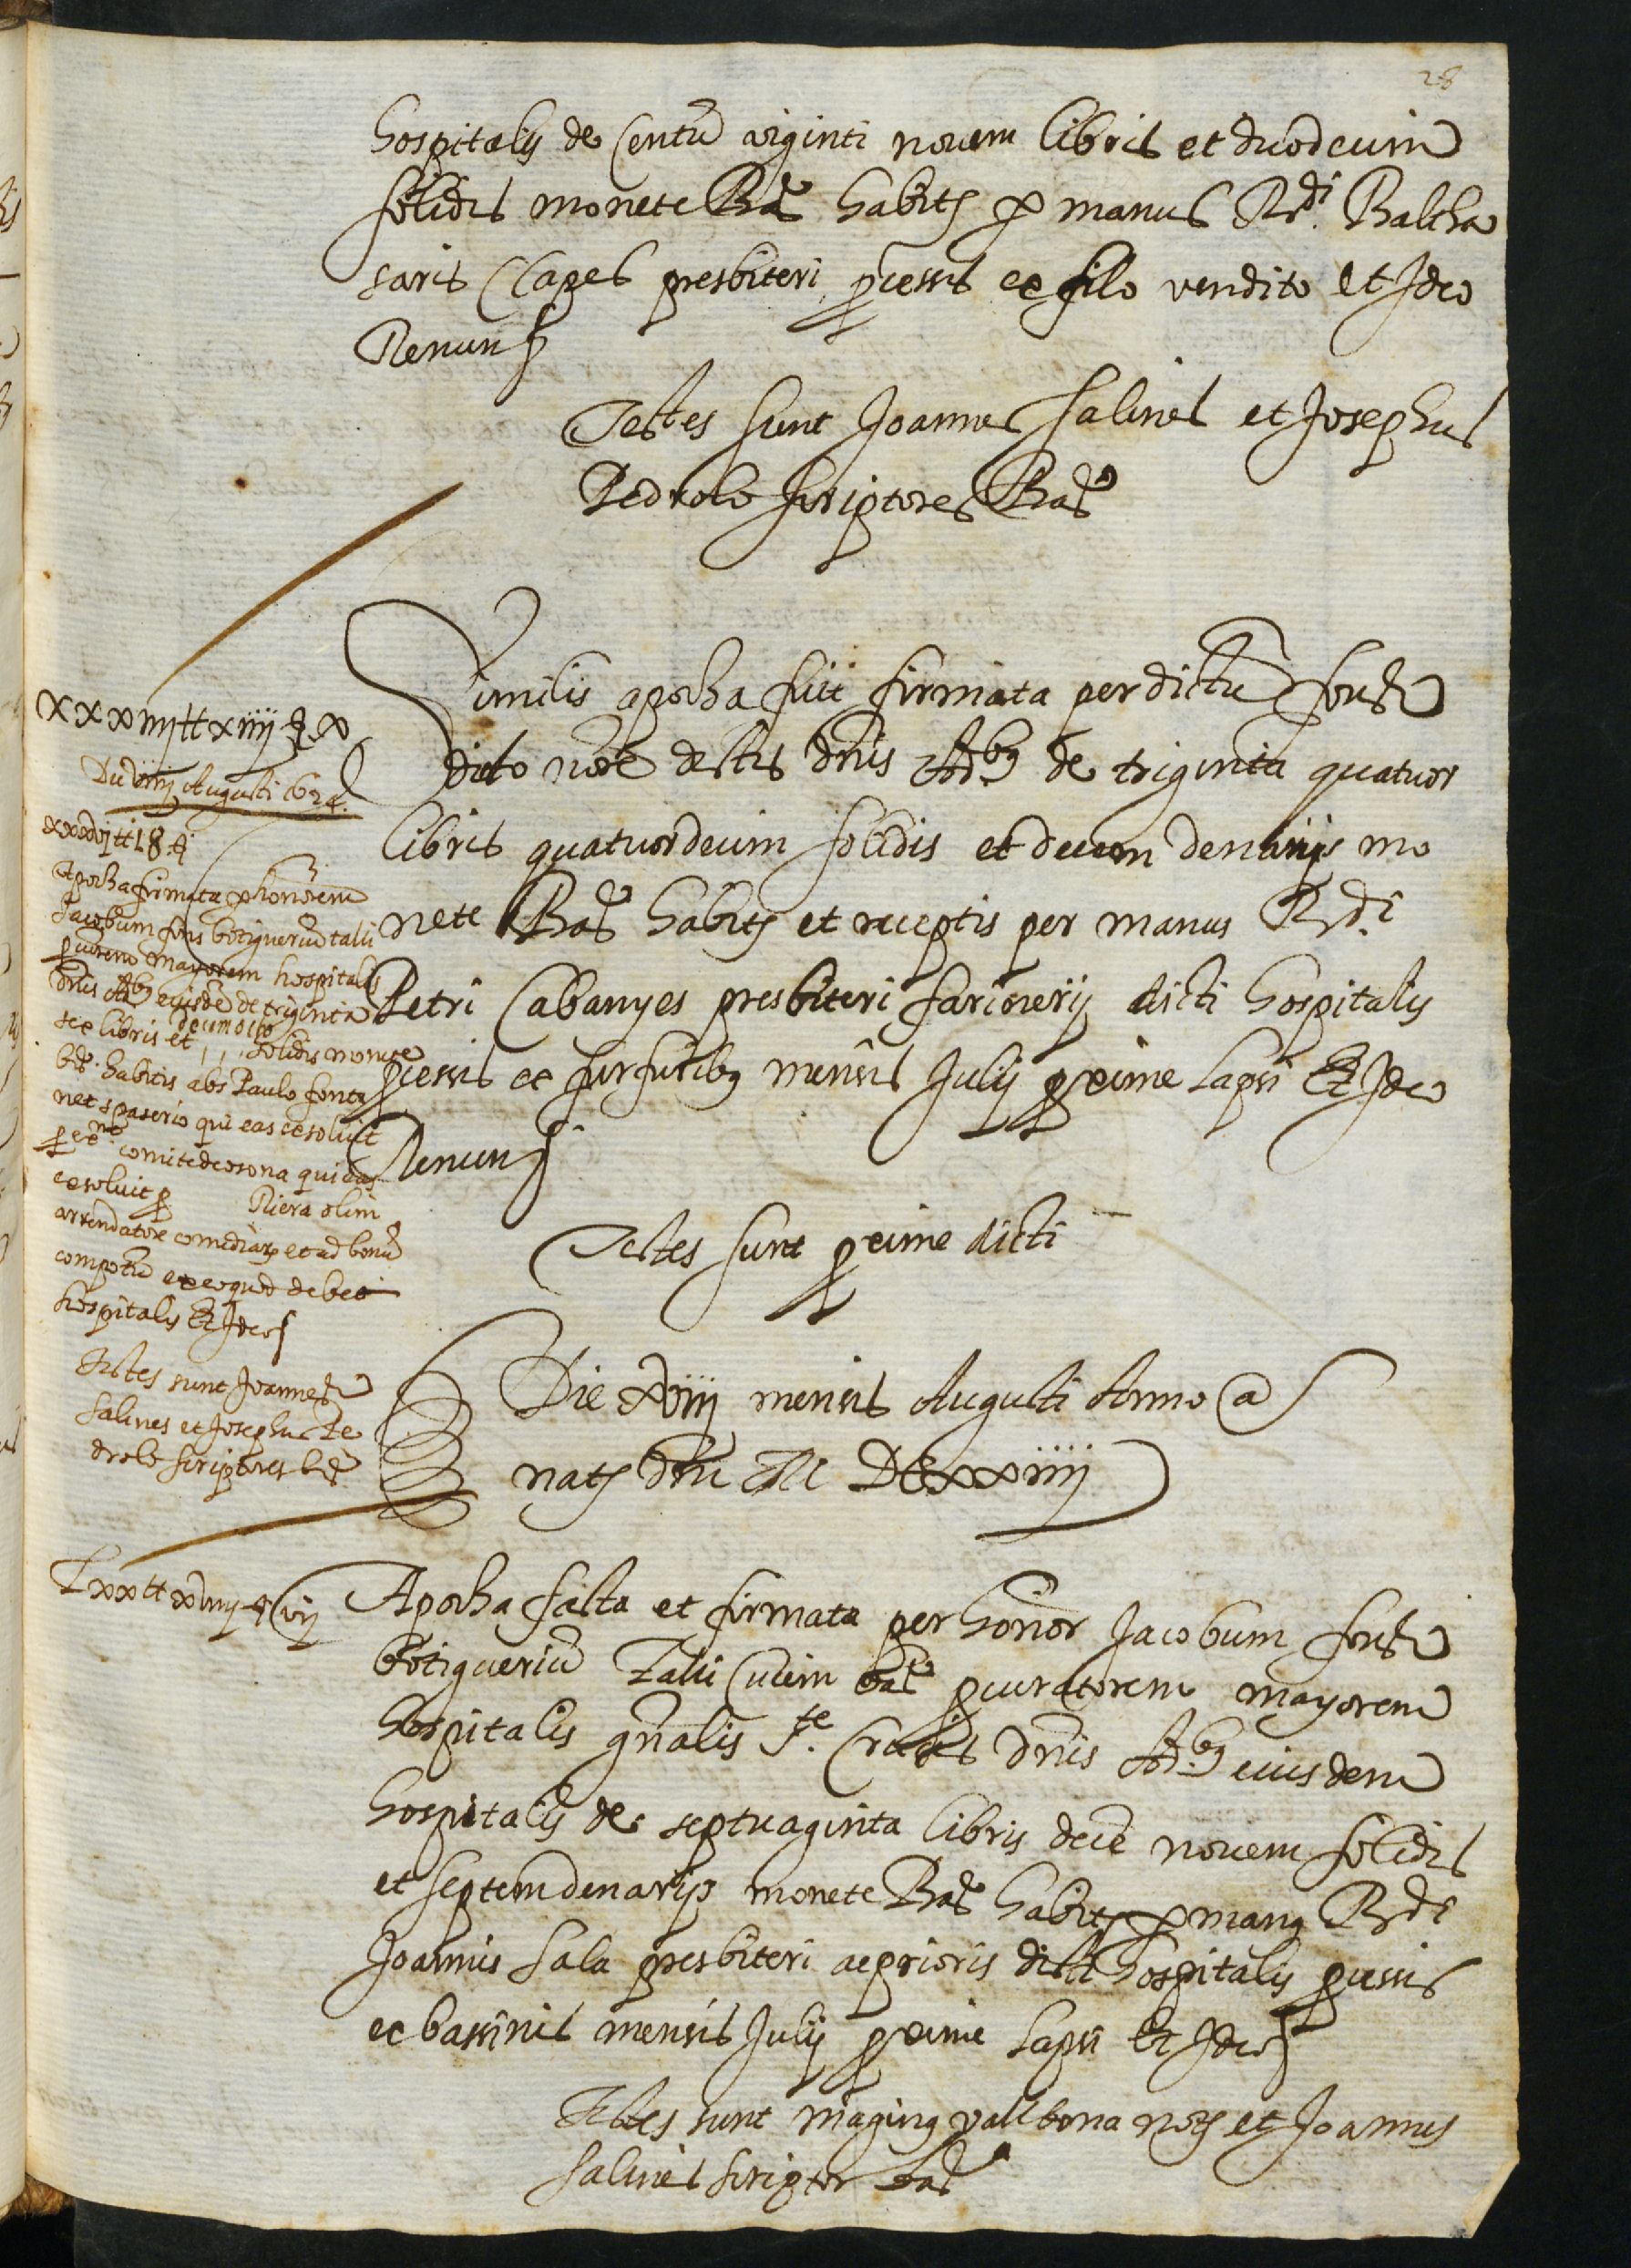 28
hospitalis de Centũ viginti novem libris et duodecim
solidis monete Bar habits p manus Rdi. Baltha
saris Clapes presbiteri pcessis ex filo vendito et Ideo
Renuns
Testes sunt Joannes Salines et Josephus
Pedrolo scriptores Bar
Similis apocha fuit firmata per dictũ font
dicto noe dictis dnis Adbz de triginta quatuor
libris quatuordecim solidis et decem denariis mo
nete Bar habits et receptis per manus Rdi
Petri Cabanyes presbiteri farionerij dicti hospitalis
pcessis ex furfuribz mensis Julij pxime lapsi Et Ideo
Renuns
Testes sunt pxime dicti
Die xviiij mensis Augusti Anno a
nats dni M DCxxiiij
Apocha facta et firmata per honor Jacobum font
botiguerium Talli Civem bar pcuratorem mayorem
hospitalis gnalis Ste. Crucis dnis Adbz eiusdem
hospitalis de septuaginta libris decẽ novem solidis
et septem denarijs monete Bar habits p manz Rdi
Joannis Sala presbiteri ac prioris dicti hospitalis pcessis
ex bassinis mensis Julij pxime lapsi Et Ideo
Testes sunt maginz vallbona nots et Joannes
Salines scriptor bar
xxxiiij tt xiiij s x
Die viiij Augusti 1624.
xxxvj tt 18 s
Apocha firmata p honorem
Jacobum fons botiguerium talli
pcurem mayorem hospitalis
dnis Adbz eiusdẽ de triginta
sex libris et decim octo solidis monete
bar. habitis abs Paulo fonta
net spaserio qui eas exsoluit
p exmo comite de osona qui eas
exsoluit p Riera olim
arrendatore comediarz et ad bonũ
compotũ ex eo quod debet
hospitalis Et Ideo
Testes sunt Joannes
Salines et Josephus Pe
drolo scriptores bar
Lxx tt xviiij s vij